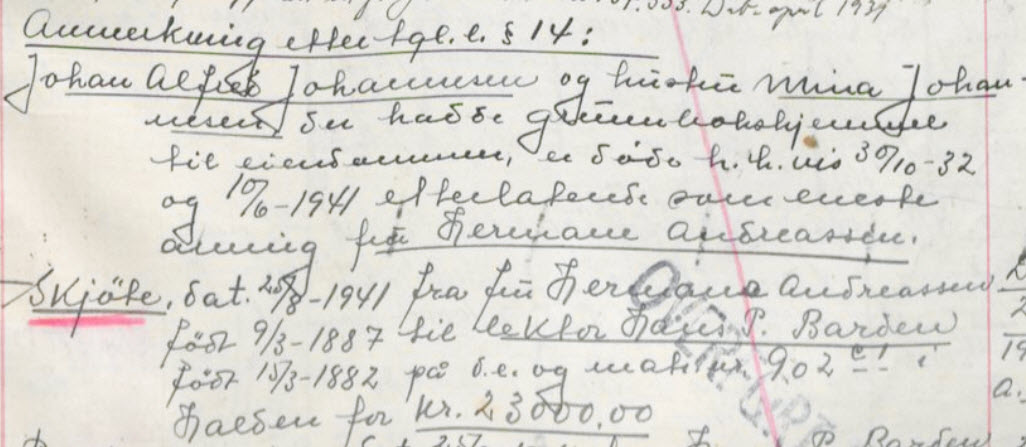 Dat. april 1939
Anmerkning efter tgl. l. § 14:
Johan Alfred Johannesen og hustru Mina Johan-
nesen, der hadde grunnbokshjemmel
til eiendommen, er døde h.h.vis 30/10-32
og 10/6-1941 etterlatende som eneste
arving fru Hermane Andreassen.
Skjöte, dat. 25/8-1941 fra fru Hermane Andreassen
födt 9/3-1887 til lektor Hans P. Barden
födt 15/3-1882 på d.e. og matr.nr. 902 i
Halden for kr. 23000,00
OVERFØRT
P. Barden